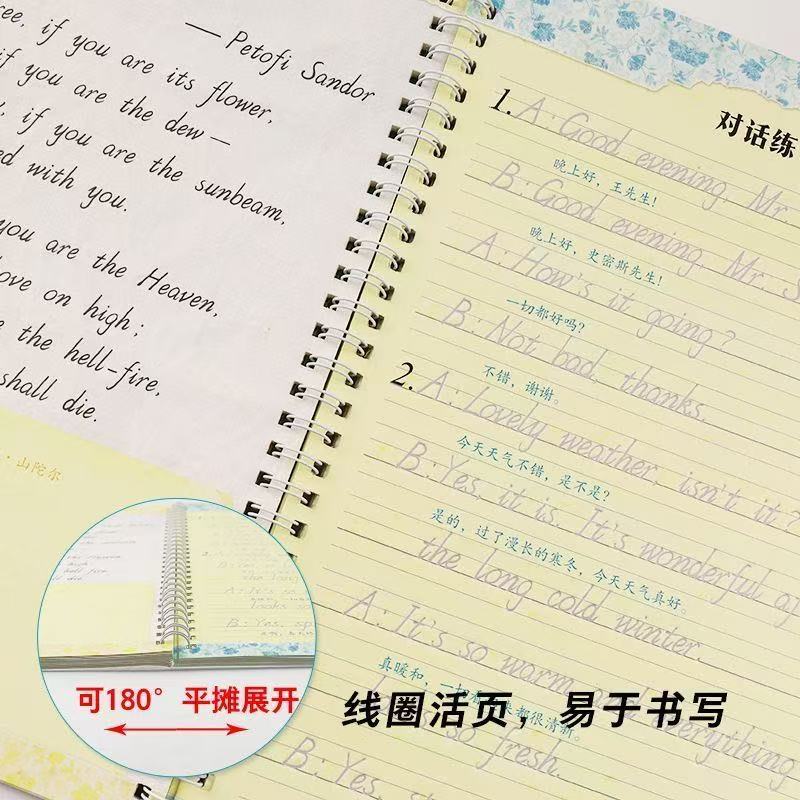 — Petofi Sandor
if you are its flower,
if you are the dew—
if you are the sunbeam,
with you.
you are the Heaven,
love on high;
the hell-fire,
shall die.
·山陀尔
对话练
1. A: Good evening, Mr.
晚上好，王先生！
B: Good evening, Mr. S
晚上好，史密斯先生！
A: How's it going?
一切都好吗？
B: Not bad, thanks.
不错，谢谢。
2. A: Lovely weather, isn't it?
今天天气不错，是不是？
B: Yes, it is. It's wonderful
是的，过了漫长的寒冬，今天天气真好。
the long cold winter.
A: It's so warm, everything
真暖和，一切 来都很清新。
so fresh.
B: Yes,
可180°平摊展开
线圈活页，易于书写